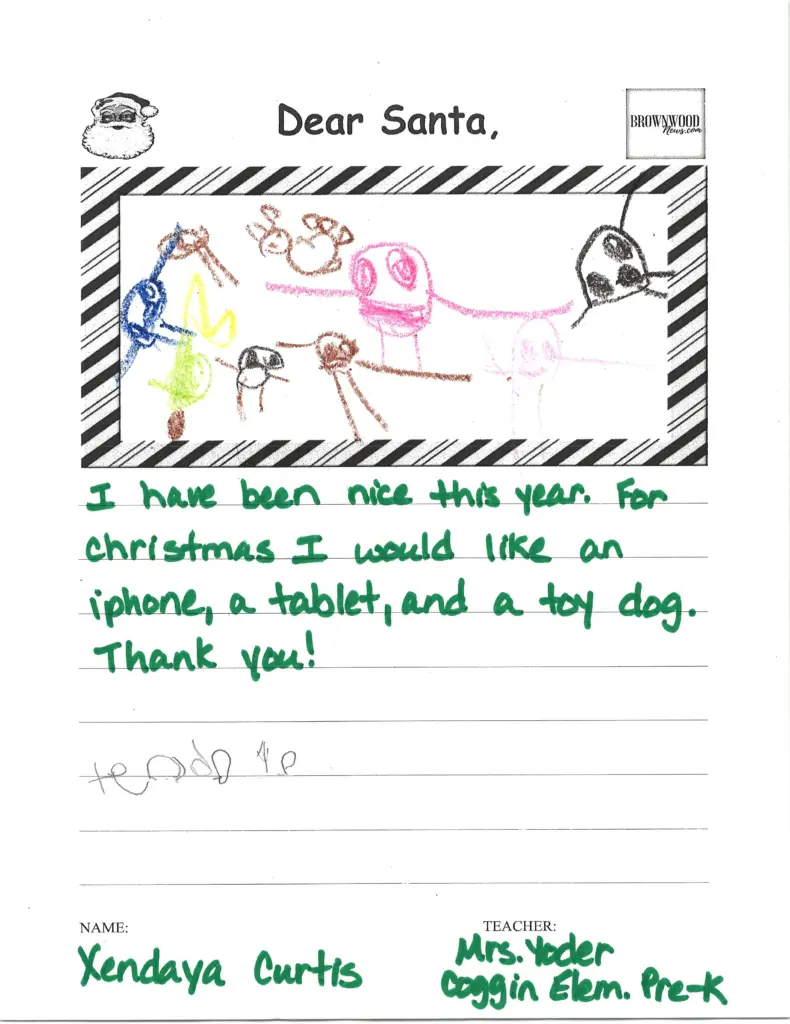 Dear Santa,
BROWNWOOD
News.com
I have been nice this year. For
christmas I would like an
iphone, a tablet, and a toy dog.
Thank you!
NAME:
TEACHER:
Xendaya Curtis
Mrs. Yoder
Coggin Elem. Pre-K